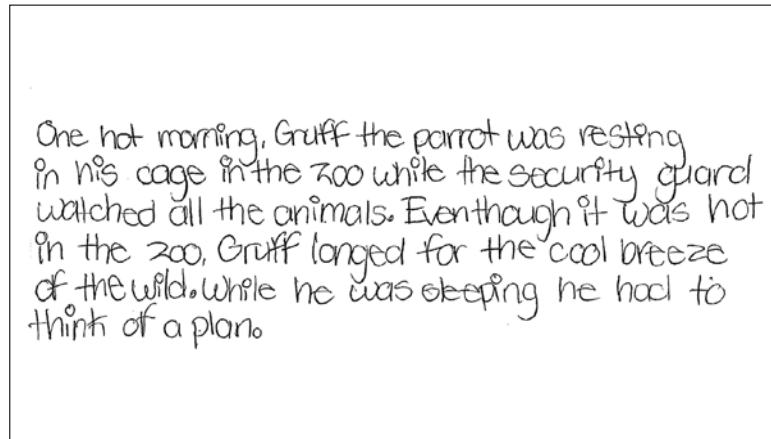 One hot morning, Gruff the parrot was resting
in his cage in the zoo while the security guard
watched all the animals. Eventhough it was hot
in the zoo, Gruff longed for the cool breeze
of the wild. While he was sleeping he had to
think of a plan.